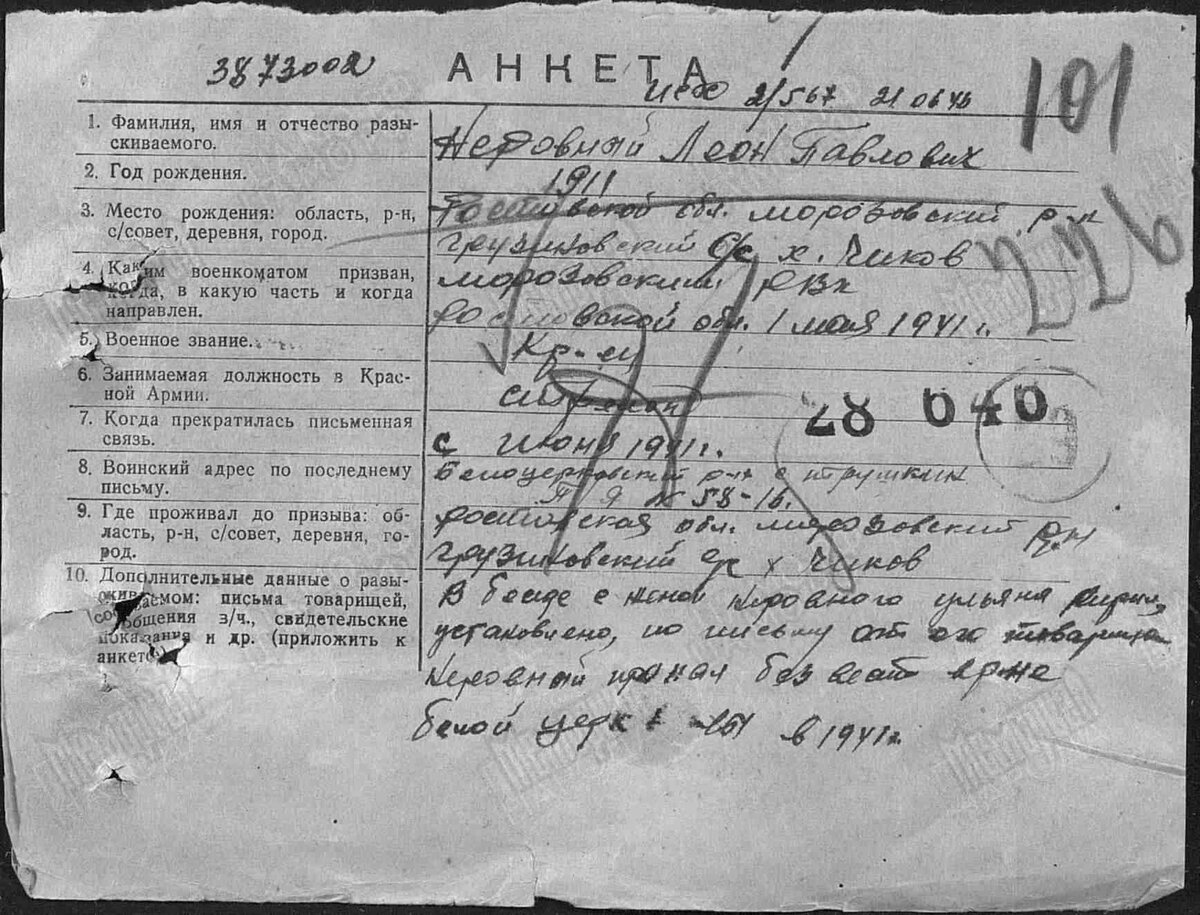 3873002
АНКЕТА
2/567 210646
101
1. Фамилия, имя и отчество разы-
скиваемого.
Неровный Леон Павлович
2. Год рождения.
1911
3. Место рождения: область, р-н,
с/совет, деревня, город.
Ростовской обл. морозовский р-н
грузиновский с/с х. Чиков
226
4. Каким военкоматом призван,
когда, в какую часть и когда
направлен.
морозовским РВК
Ростовской обл. 1 мая 1941 г.
5. Военное звание.
Кр-ец
6. Занимаемая должность в Крас-
ной Армии.
стрелок
28 040
7. Когда прекратилась письменная
связь.
с июня 1941 г.
8. Воинский адрес по последнему
письму.
Белоцерковский р-н с
П Я 58-16.
9. Где проживал до призыва: об-
ласть, р-н, с/совет, деревня, го-
род.
ростовская обл. морозовский р-н
грузиновский с/с х Чиков
10. Дополнительные данные о разы-
скиваемом: письма товарищей,
сообщения з/ч., свидетельские
показания и др. (приложить к
анкете)
В беседе с женой Неровного ульяна
установлено, по письму от его товарища
Неровный пропал без вест в р-не
белой церк в 1941 г.